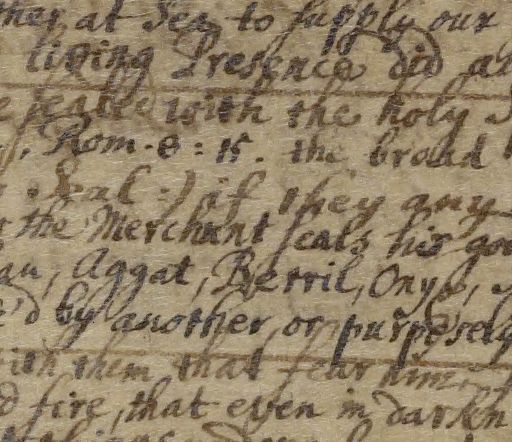 ther at Sea to supply our
living Presence did
with the holy
Rom. 8 : 15. the broad
Seal :) if they any
the Merchant seals his goo
Aggat, Berril, Onyx,
'd by another, or purposely
with them that fear him
d fire, that even in darken